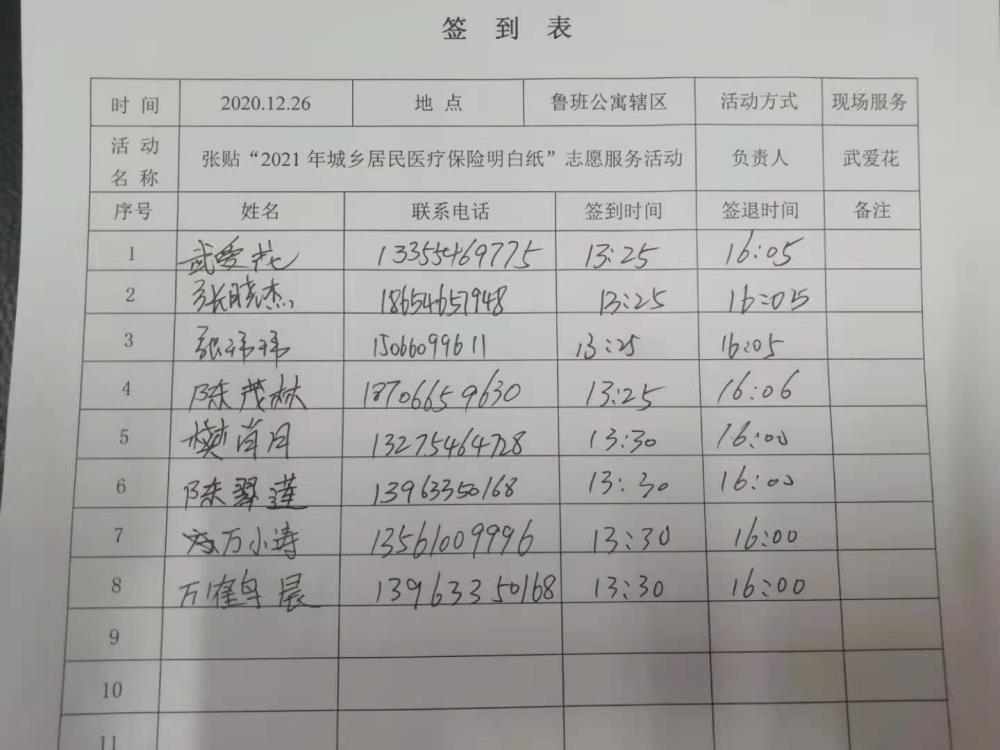 签 到 表
时 间 2020.12.26 地 点 鲁班公寓辖区 活动方式 现场服务
活 动 名 称 张贴“2021年城乡居民医疗保险明白纸”志愿服务活动 负责人 武爱花
序号 姓名 联系电话 签到时间 签退时间 备注
1 武爱花 13355469775 13:25 16:05
2 张晓杰 18654657948 13:25 16:05
3 张祎祎 15066099611 13:25 16:05
4 陈茂林 18706659630 13:25 16:06
5 樊首月 13275464728 13:30 16:00
6 陈翠莲 13963350168 13:30 16:00
7 万小涛 13561009996 13:30 16:00
8 万鹤晨 13963350168 13:30 16:00
9
10
11